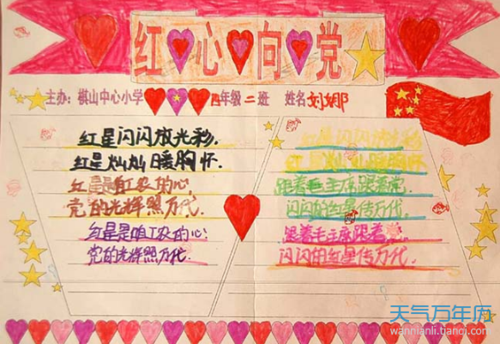 红心向党
主办: 棋山中心小学 四年级二班 姓名 刘娜
红星闪闪放光彩,
红星灿灿暖胸怀.
红星是咱工农的心,
党的光辉照万代.
红星是咱工农的心
党的光辉照万代.
红星闪闪放光彩
红星灿灿暖胸怀.
跟着毛主席跟着党,
闪闪的红星传万代.
跟着毛主席跟着
闪闪的红星传万代.
天气万年历
wannianli.tianqi.com